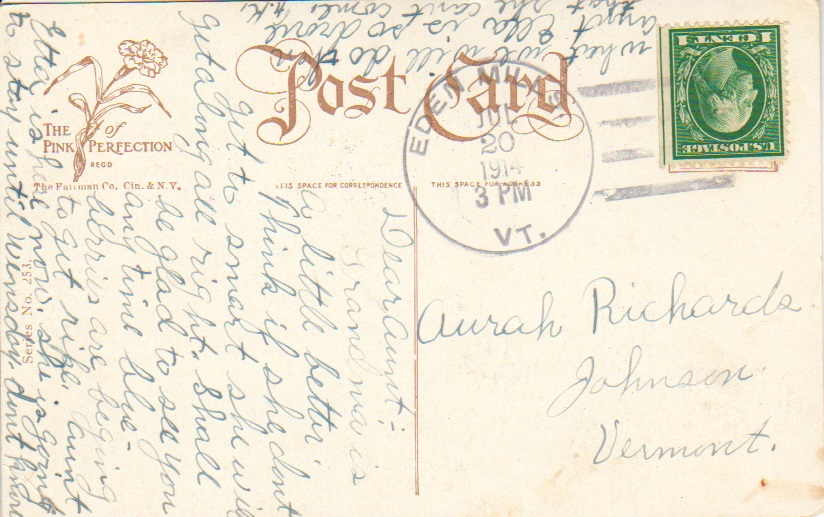 THE PINK of PERFECTION
REGD
The Fairman Co., Cin. & N.Y.
Series No. 253.
Post Card
THIS SPACE FOR CORRESPONDENCE
THIS SPACE FOR ADDRESS
EDEN MILLS
JUL
20
1914
3 PM
VT.
U.S. POSTAGE
1 CENT 1
Aurah Richards
Johnson
Vermont.
Dear Aunt:-
Grandma is
a little better
Think if she dont
get to smart she will
get along all right. Shall
be glad to see you
any time blue-
berries are beging
to get ripe. aunt
Etta is here now. she is going
to stay until Wensday. dont know
what we will do then
aunt Ella is so drove
that she cant come.